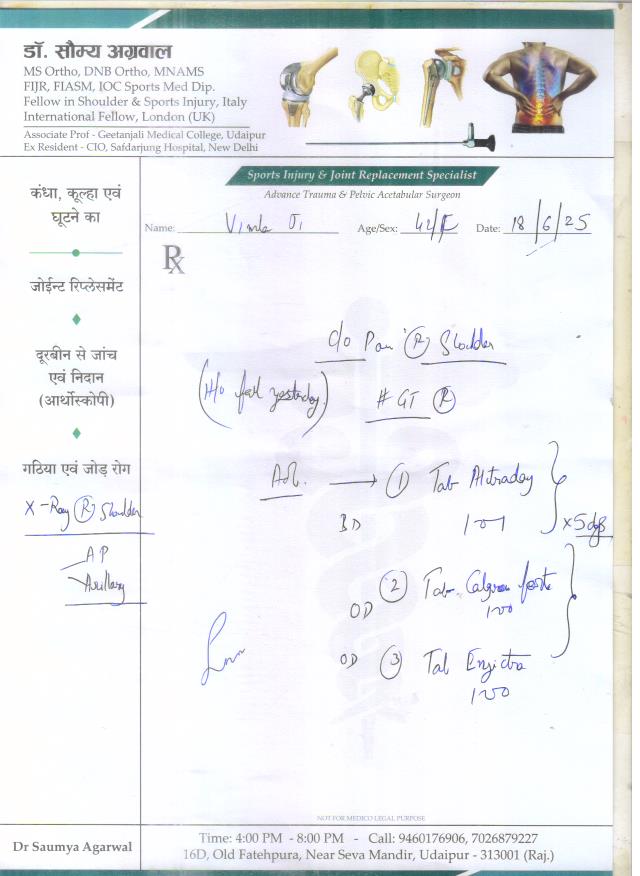 डॉ. सौम्य अग्रवाल
MS Ortho, DNB Ortho, MNAMS
FIJR, FIASM, IOC Sports Med Dip.
Fellow in Shoulder & Sports Injury, Italy
International Fellow, London (UK)
Associate Prof - Geetanjali Medical College, Udaipur
Ex Resident - CIO, Safdarjung Hospital, New Delhi
Sports Injury & Joint Replacement Specialist
Advance Trauma & Pelvic Acetabular Surgeon
Name: Vimla Ji Age/Sex: 42/F Date: 18/6/25
Rx
कंधा, कूल्हा एवं
घूटने का
जोईन्ट रिप्लेसमेंट
दूरबीन से जांच
एवं निदान
(आर्थोस्कोपी)
गठिया एवं जोड़ रोग
X-Ray (R) Shoulder
AP
Axillary
c/o Pain (R) Shoulder
(H/o fall yesterday)
# GT (R)
Adv. → (1) Tab
BD 1-0-1 x 5 days
OD (2) Tab. forte
1-0-0
OD (3) Tab
1-0-0
NOT FOR MEDICO LEGAL PURPOSE
Dr Saumya Agarwal
Time: 4:00 PM - 8:00 PM - Call: 9460176906, 7026879227
16D, Old Fatehpura, Near Seva Mandir, Udaipur - 313001 (Raj.)